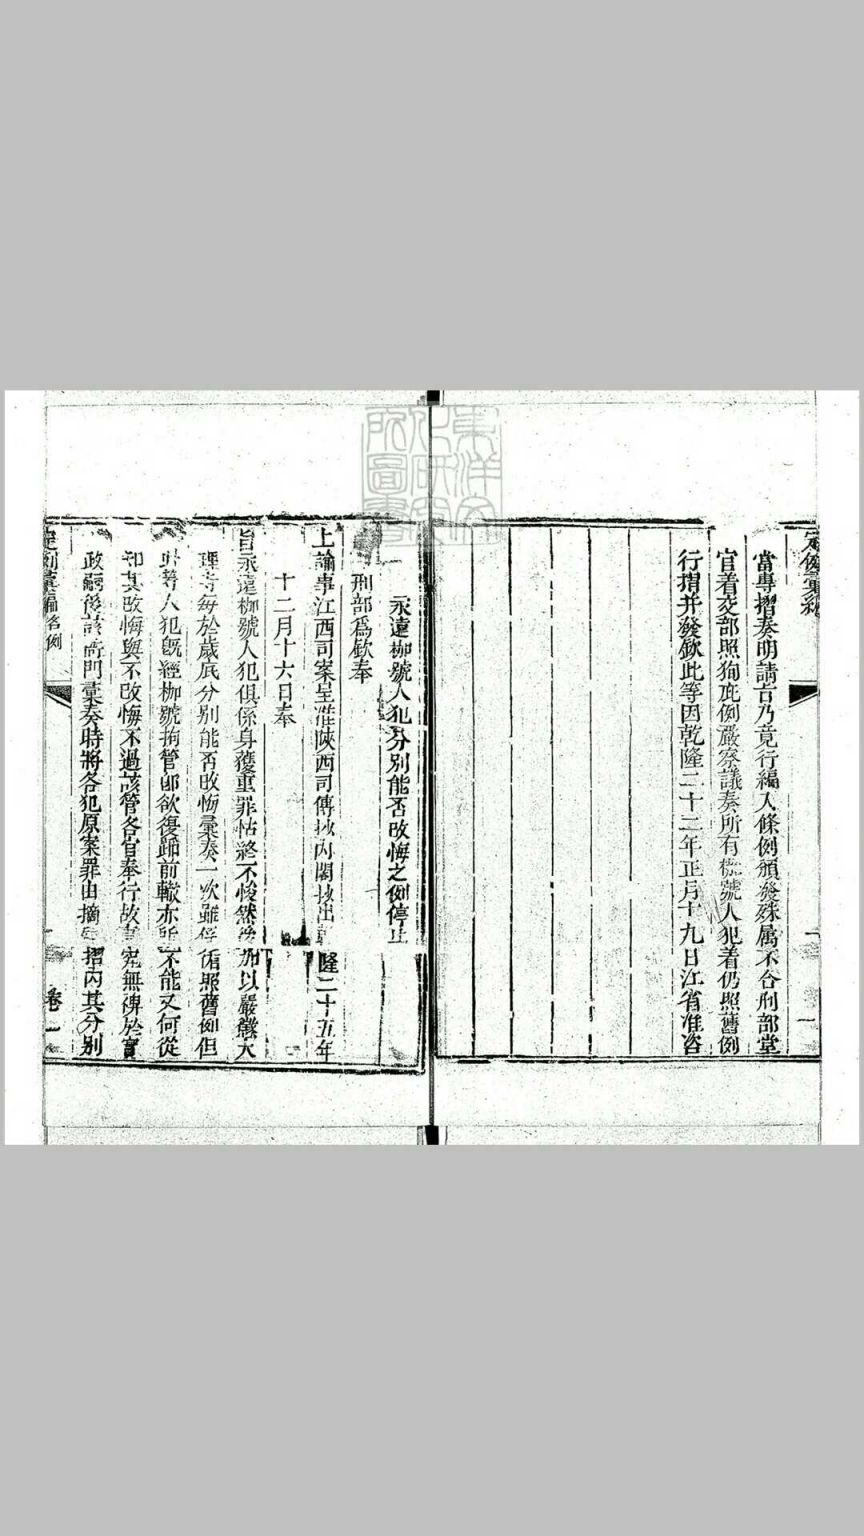 定例彙編
當專摺奏明請旨乃竟行編入條例頒發殊屬不合刑部堂
官着交部照狥庇例嚴察議奏所有枷號人犯着仍照舊例
行摺并發欽此等因乾隆二十二年正月十九日江省准咨
一永遠枷號人犯分別能否改悔之例停止
刑部爲欽奉
上諭事江西司案呈准陜西司傳抄內閣抄出乾隆二十五年
十二月十六日奉
旨永遠枷號人犯俱係身獲重罪怙終不悛然後加以嚴懲大
理寺每於歲底分別能否改悔彙奏一次雖係循照舊例但
此等人犯既經枷號拘管即欲復蹈前轍亦所不能又何從
知其改悔與不改悔不過該管各官奉行故事究無裨於實
政嗣後該衙門彙奏時將各犯原案罪由摘 摺內其分別
定例彙編 名例 卷一
東洋文化研究所圖書